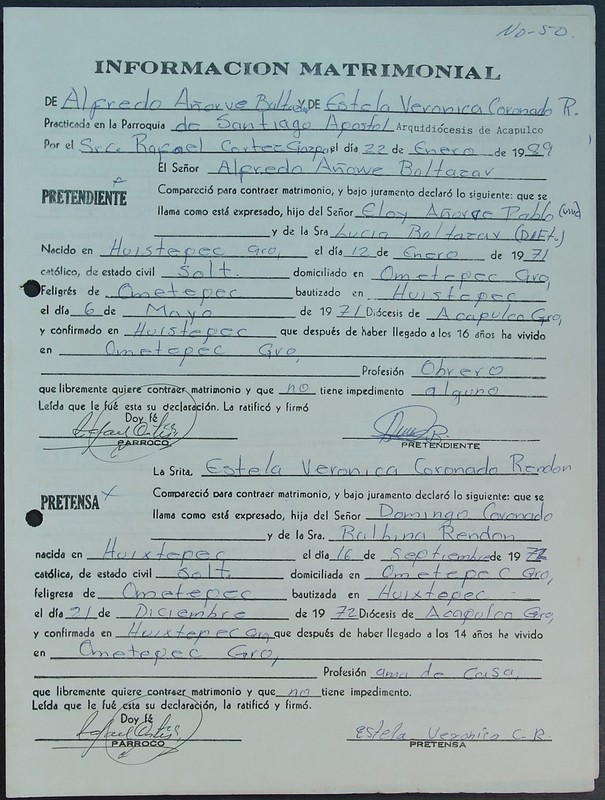 No-50.
INFORMACION MATRIMONIAL
DE Alfredo Añorve Baltazar Y DE Estela Veronica Coronado R.
Practicada en la Parroquia de Santiago Apostol Arquidiócesis de Acapulco
Por el Sr.c. Rafael Cortez el día 22 de Enero de 1989
El Señor Alfredo Añorve Baltazar
PRETENDIENTE
Compareció para contraer matrimonio, y bajo juramento declaró lo siguiente: que se
llama como está expresado, hijo del Señor Eloy Añorve Pablo
y de la Sra Lucia Baltazar
Nacido en Huistepec Gro, el día 12 de Enero de 1971
católico, de estado civil Solt. domiciliado en Ometepec Gro,
Feligrés de Ometepec bautizado en Huistepec
el día 6 de Mayo de 1971 Diócesis de Acapulco Gro,
y confirmado en Huistepec que después de haber llegado a los 16 años ha vivido
en Ometepec Gro,
Profesión Obrero
que libremente quiere contraer matrimonio y que no tiene impedimento alguno
Leída que le fué esta su declaración. La ratificó y firmó
Doy fé
PARROCO PRETENDIENTE
La Srita. Estela Veronica Coronado Rendon
PRETENSA
Compareció para contraer matrimonio, y bajo juramento declaró lo siguiente: que se
llama como está expresado, hija del Señor Domingo Coronado
y de la Sra. Balbina Rendon
nacida en Huixtepec el día 16 de Septiembre de 1972
católica, de estado civil Solt. domiciliada en Ometepec Gro,
feligresa de Ometepec bautizada en Huixtepec
el día 21 de Diciembre de 1972 Diócesis de Acapulco Gro,
y confirmada en Huixtepec Gro que después de haber llegado a los 14 años ha vivido
en Ometepec Gro,
Profesión ama de Casa,
que libremente quiere contraer matrimonio y que no tiene impedimento.
Leída que le fué esta su declaración, la ratificó y firmó.
Doy fé
PARROCO
Estela Veronica C. R.
PRETENSA